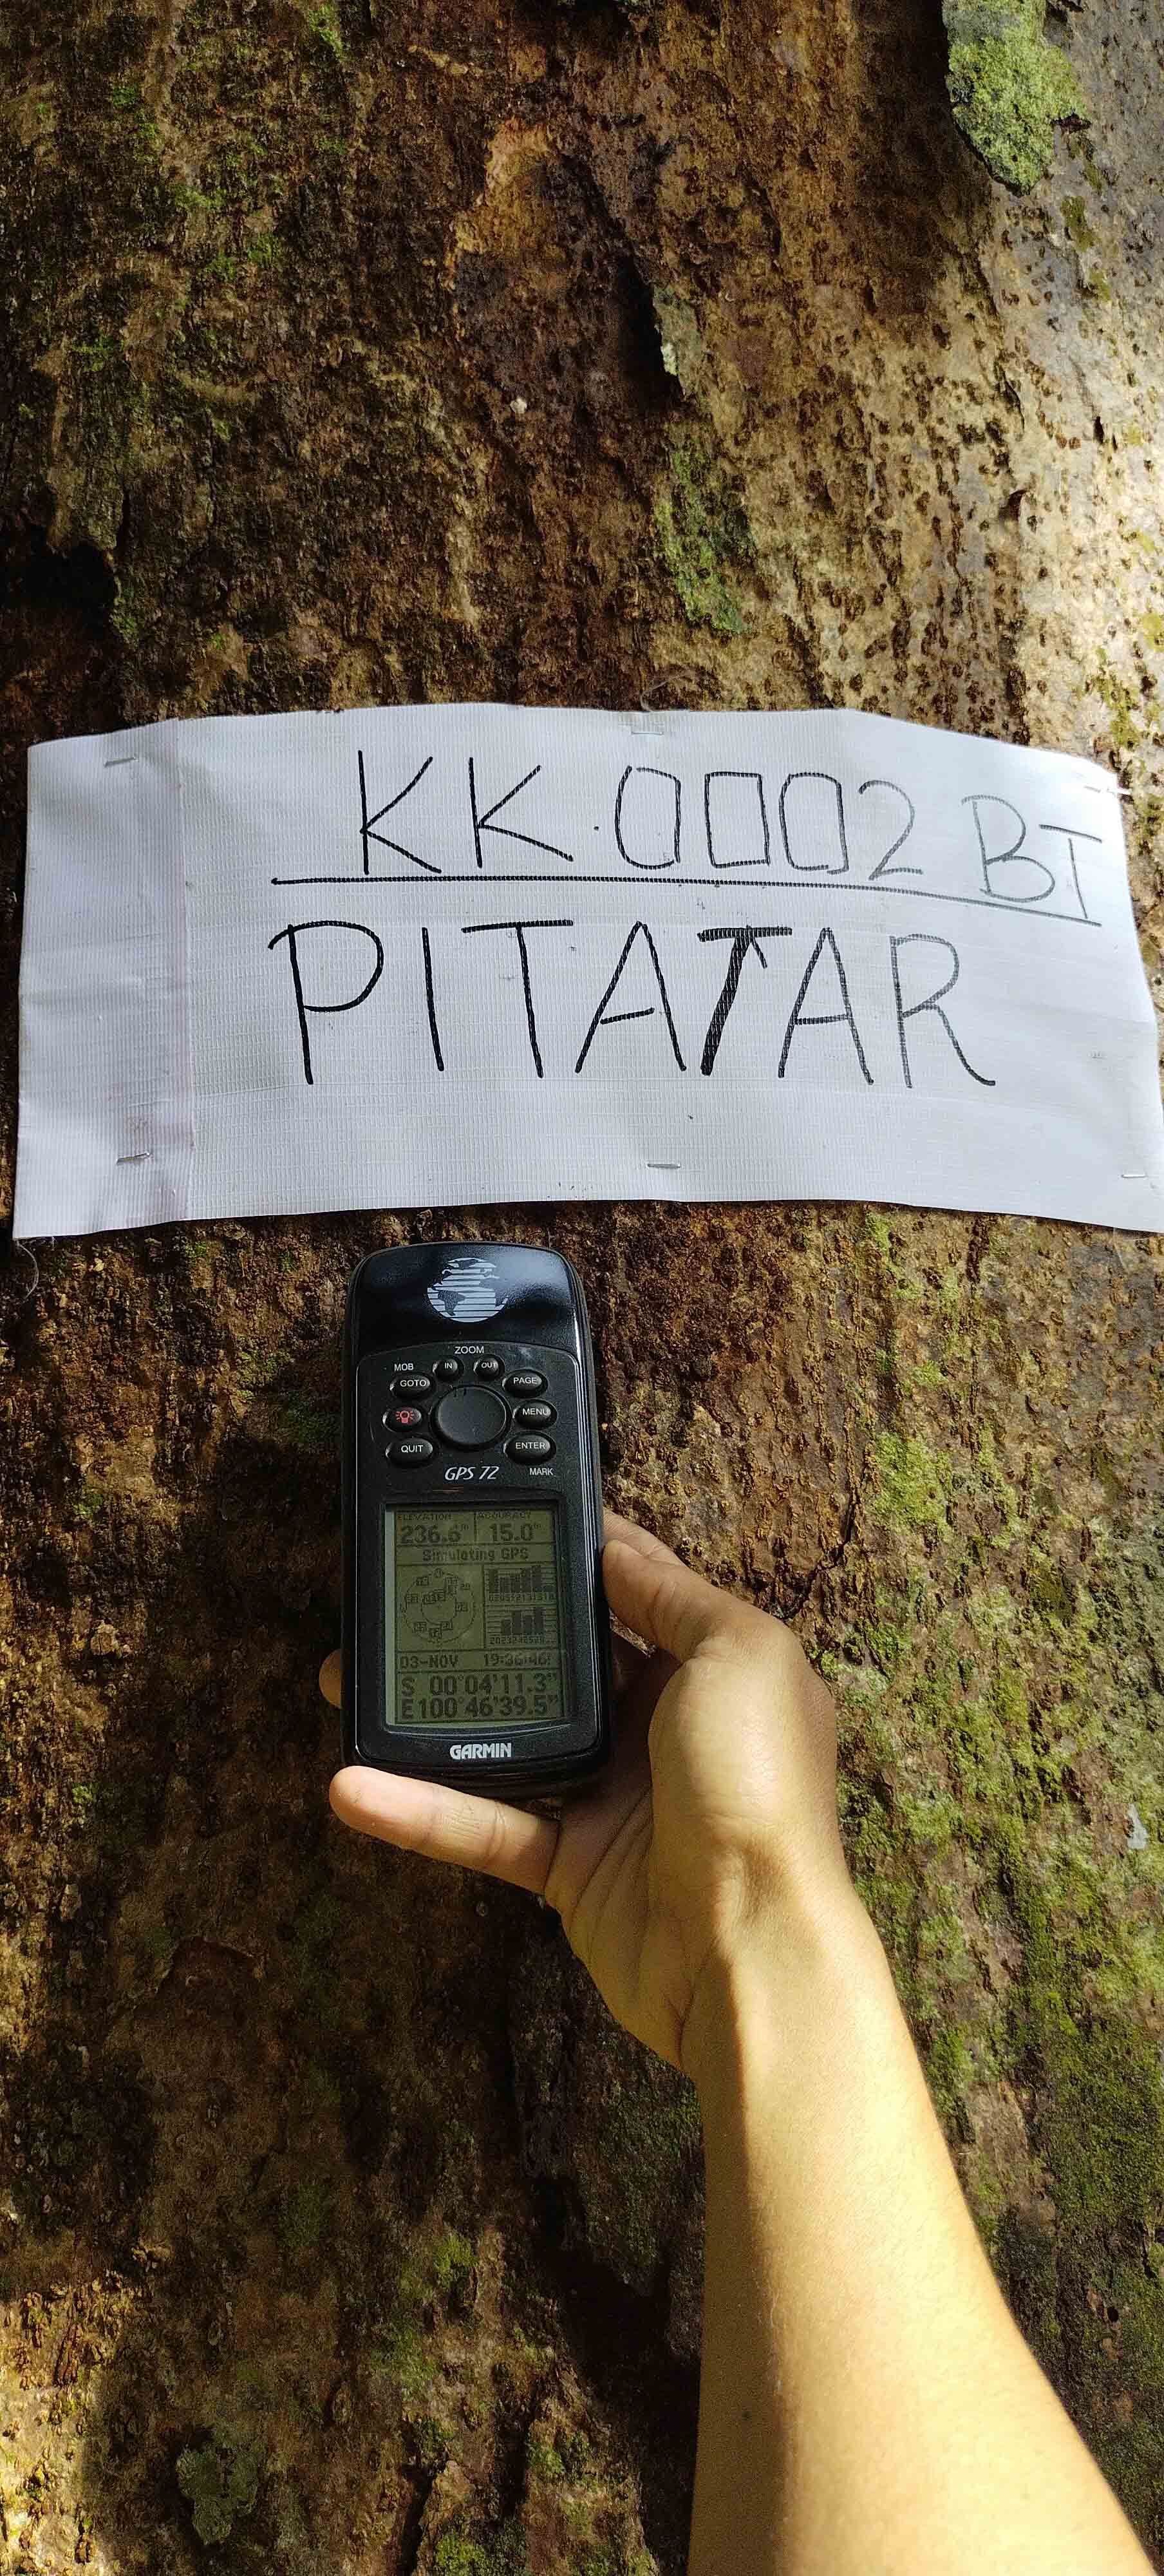 KK.0002 BT
PITATAR
ZOOM
MOB IN OUT
GOTO PAGE
MENU
QUIT ENTER
GPS 72 MARK
ELEVATION ACCURACY
236.6m 15.0m
Simulating GPS
03-NOV 19:36:46
S 00°04'11.3"
E100°46'39.5"
GARMIN